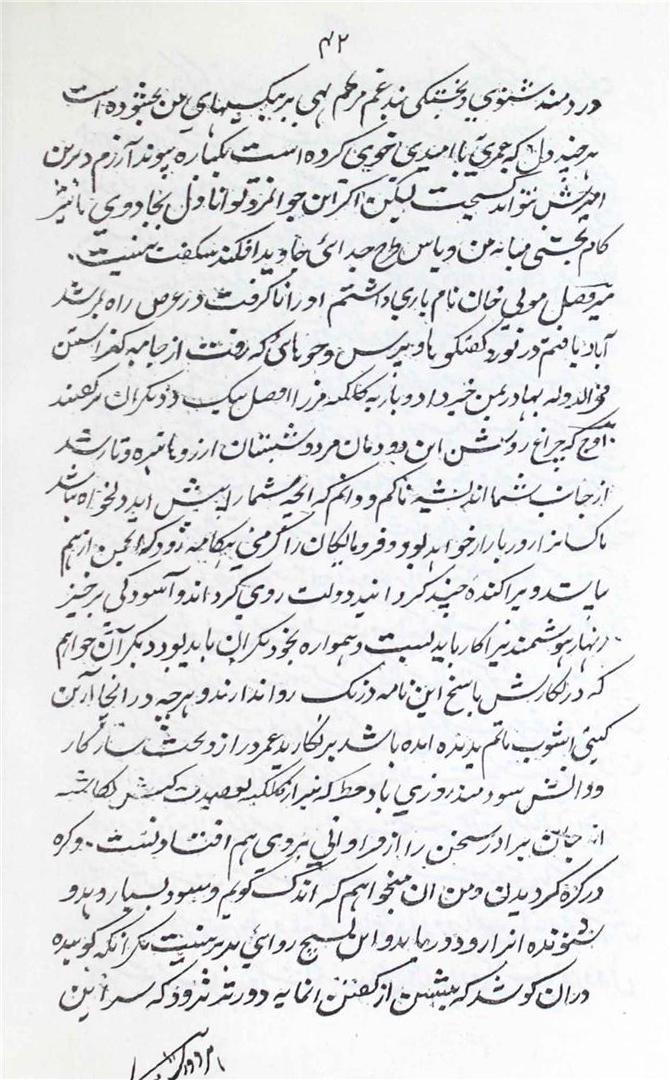 ۴۲
دردمند شنوی و بختگی بند غم مرهم نهی بر بیکسیهای من بخشوده است
هر چند دل که عمری با امیدی خوی کرده است یکباره پیوند آرزم دیرین
امیدش نتواند گسیخت لیکن اگر این جوانمرد توانا دل بجادوی تاثیر
کام بخشی میانه من و یاس طرح جدائی جاوید افکند شگفت نیست.
میر فضل مولی خان نام یاری داشتم او را ناگرفت در عرض راه بمرشد
آباد یافتم در نورد گفتگو با و پرس و جو های که رفت از جامه گذاشتن
فخرالدوله بهادر بمن خبر داد و باز به کلکته مرزا افضل بیک و دیگران گفتند
آوخ که چراغ روشن این دودمان مرد و شبستان آرزوها تیره و تار شد
از جانب شما اندیشه ناکم و دانم که آنچه شما را پیش آید دلخواه نباشد
ناکسانرا روز بازار خواهد بود و فرومایگان را گرمی هنگامه زود که انجمن از هم
پاشد و پراکنده چند گرد آیند دولت روی گرداند و آسودگی برخیزد
زنهار هوشمندی را کار باید بست و همواره بخود نگران باید بود دیگر آن خواهم
که در نگارش پاسخ این نامه درنگ روا ندارند و هر چه در آنجا ازین
گیتی آشوب ماتم پدید آمده باشد بر نگارند عمر دراز و بخت سازگار
و دانش سودمند روزی باد خط که نیز از کلکته
از جان برادر سخن را از فراوانی بر روی هم افتادنست و گره
در گره گردیدن و من آن میخواهم که اندک گویم و سود بسیار دهد و
شنونده آنرا زود دریابد و این بسیچ روائی پذیر نیست مگر آنکه گوینده
در آن کوشد که بیشین از گفتن آنمایه دورتر نرود که سر این